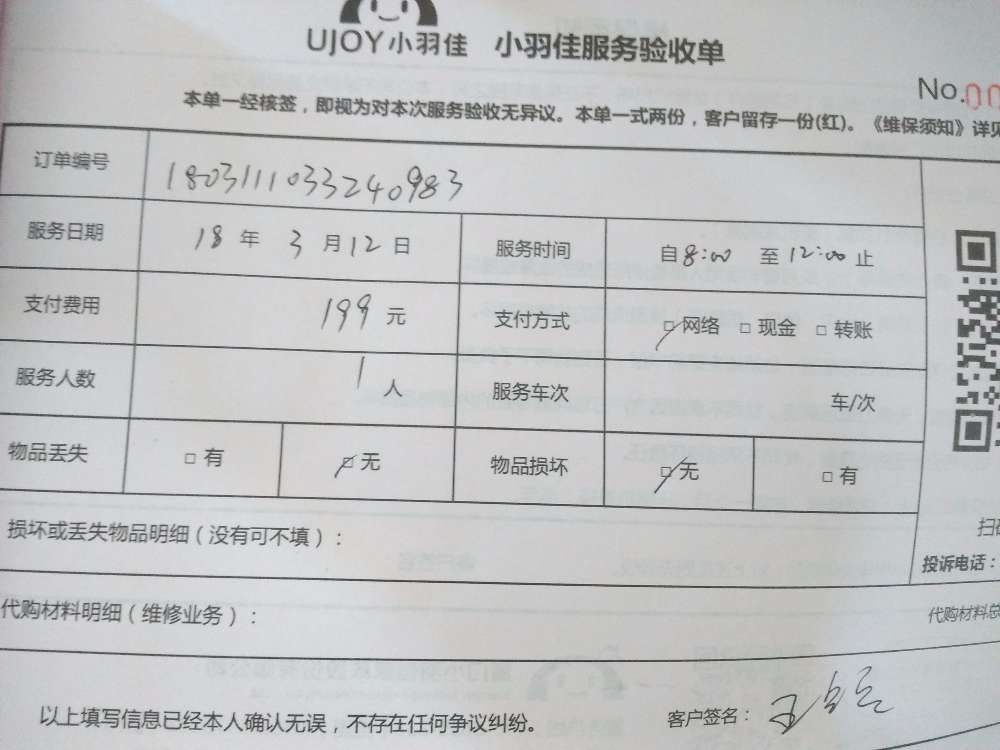 UJOY小羽佳 小羽佳服务验收单
No.00
本单一经核签，即视为对本次服务验收无异议。本单一式两份，客户留存一份(红)。《维保须知》详见
订单编号 18031110333240983
服务日期 18 年 3 月 12 日 服务时间 自 8:00 至 12:00 止
支付费用 199 元 支付方式 □ 网络 □ 现金 □ 转账
服务人数 1 人 服务车次 车/次
物品丢失 □ 有 □ 无 物品损坏 □ 无 □ 有
损坏或丢失物品明细（没有可不填）：
扫
投诉电话：
代购材料明细（维修业务）：
代购材料总
以上填写信息已经本人确认无误，不存在任何争议纠纷。 客户签名： 王